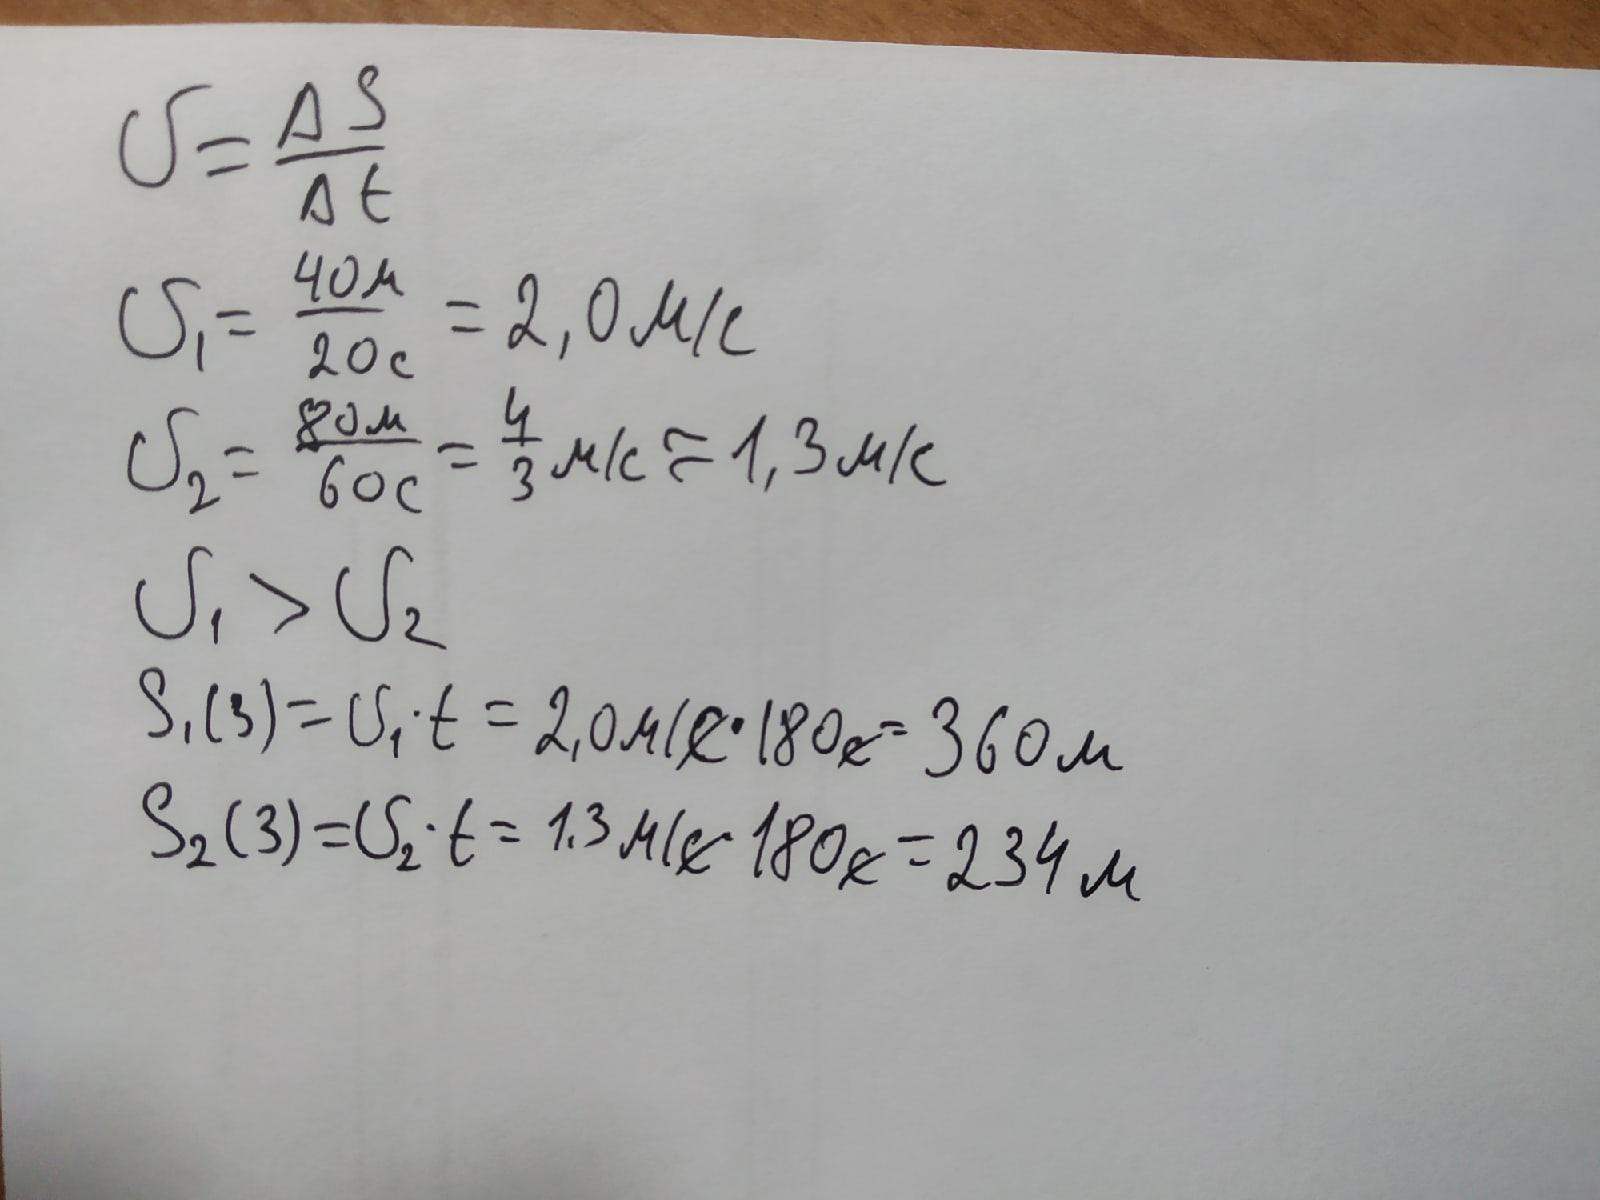 υ = ΔS / Δt
υ₁ = 40м / 20с = 2,0 м/с
υ₂ = 80м / 60с = 4/3 м/с ≈ 1,3 м/с
υ₁ > υ₂
S₁(3) = υ₁·t = 2,0 м/с · 180с = 360 м
S₂(3) = υ₂·t = 1.3 м/с · 180с = 234 м